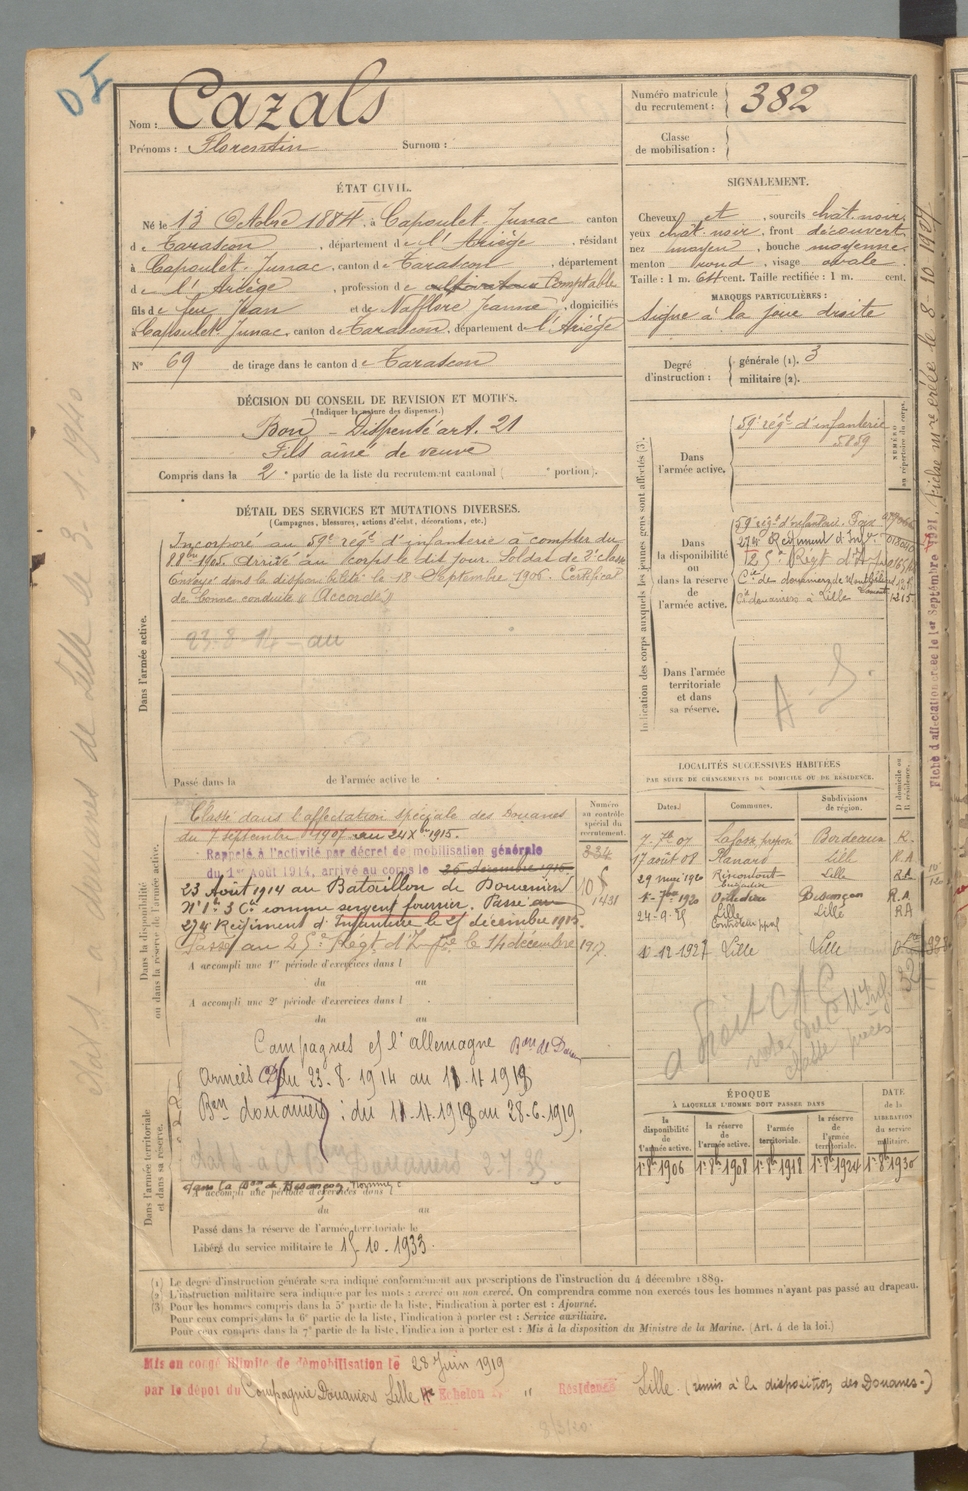 D I
Nom : Cazals
Prénoms : Florentin Surnom :
Numéro matricule
du recrutement : 382
Classe
de mobilisation :
ÉTAT CIVIL.
Né le 13 Octobre 1884, à Capoulet-Junac canton
de Tarascon, département de l'Ariège, résidant
à Capoulet-Junac, canton de Tarascon, département
de l'Ariège, profession de cultivateur Comptable
fils de feu Jean et de Nafflore Jeanne, domiciliés
à Capoulet-Junac, canton de Tarascon, département de l'Ariège
N° 69 de tirage dans le canton de Tarascon
SIGNALEMENT.
Cheveux et, sourcils chât. noir,
yeux chât. noir, front découvert,
nez moyen, bouche moyenne,
menton rond, visage ovale.
Taille : 1 m. 64 cent. Taille rectifiée : 1 m. cent.
MARQUES PARTICULIÈRES :
signe à la joue droite
Degré
d'instruction :
générale (1). 3
militaire (2).
DÉCISION DU CONSEIL DE REVISION ET MOTIFS.
(Indiquer la nature des dispenses.)
Bon - Dispensé art. 21
Fils aîné de veuve
Compris dans la 2e partie de la liste du recrutement cantonal ( e portion).
DÉTAIL DES SERVICES ET MUTATIONS DIVERSES.
(Campagnes, blessures, actions d'éclat, décorations, etc.)
Dans l'armée active.
Incorporé au 59e régt d'infanterie à compter du
8bre 1905. Arrivé au corps le dit jour. Soldat de 2e classe
Envoyé dans la disponibilité le 18 Septembre 1906. Certificat
de bonne conduite "Accordé"
23-8-14 - au
Passé dans la de l'armée active le
Indication des corps auxquels les jeunes gens sont affectés (3).
NUMÉRO
au répertoire du corps.
Dans
l'armée active.
59e régt d'infanterie
5859
Dans
la disponibilité
ou
dans la réserve
de
l'armée active.
59e régt d'infanterie. Foix
274 Régiment d'Infie
Cie de douaniers de Montbéliard
Cie douaniers à Lille 1215
Dans l'armée
territoriale
et dans
sa réserve.
A. S.
Dans la disponibilité
ou dans la réserve de l'armée active.
Classé dans l'affectation spéciale des Douanes
du 7 septembre 1907 au 24 Xbre 1915.
Rappelé à l'activité par décret de mobilisation générale
du 1er Août 1914, arrivé au corps le
23 Août 1914 au Bataillon de Douaniers
N° 1e 3 Cie comme sergent fourrier. Passé au
274 Régiment d'Infanterie le 25 décembre 1915.
Passé au 25e Regt d'Infie le 14 décembre 1917.
Numéro
au contrôle
spécial du
recrutement.
334
1431
A accompli une 1re période d'exercices dans l
du au
A accompli une 2e période d'exercices dans l
du au
LOCALITÉS SUCCESSIVES HABITÉES
PAR SUITE DE CHANGEMENTS DE DOMICILE OU DE RÉSIDENCE.
Dates. Communes. Subdivisions
de région. D domicile ou
R résidence.
7-7bre 07 Bordeaux R.
17 août 08 Lille RA
29 mai 1920
1-7bre 1920 Besançon R.A
24-9-25 Lille Lille RA
Contrôleur ppal
1-12-1927 Lille Lille
Campagnes c/ l'allemagne Bon de Douan
Armées du 23.8.1914 au 11.11.1918
Bon douaniers : du 11.11.1918 au 28.6.1919.
Dans l'armée territoriale
et dans sa réserve.
Douaniers 2.7.35
A accompli une période d'exercices dans
du au
Passé dans la réserve de l'armée territoriale le
Libéré du service militaire le 15.10.1933.
ÉPOQUE
À LAQUELLE L'HOMME DOIT PASSER DANS
DATE
de la
LIBÉRATION
du service
militaire.
la
disponibilité
de
l'armée active.
la réserve
de
l'armée active.
l'armée
territoriale.
la réserve
de
l'armée
territoriale.
1er 8bre 1906 1er 8bre 1908 1er 8bre 1918 1er 8bre 1924 1er 8bre 1930
(1) Le degré d'instruction générale sera indiqué conformément aux prescriptions de l'instruction du 4 décembre 1889.
(2) L'instruction militaire sera indiquée par les mots : exercé ou non exercé. On comprendra comme non exercés tous les hommes n'ayant pas passé au drapeau.
(3) Pour les hommes compris dans la 5e partie de la liste, l'indication à porter est : Ajourné.
Pour ceux compris dans la 6e partie de la liste, l'indication à porter est : Service auxiliaire.
Pour ceux compris dans la 7e partie de la liste, l'indication à porter est : Mis à la disposition du Ministre de la Marine. (Art. 4 de la loi.)
Mis en congé illimité de démobilisation le 28 Juin 1919
par le dépôt du Compagnie Douaniers Lille 4e Echelon N° " Résidence Lille. (remis à la disposition des Douanes.)
Fiche d'affectation créée le 1er Septembre 1921.